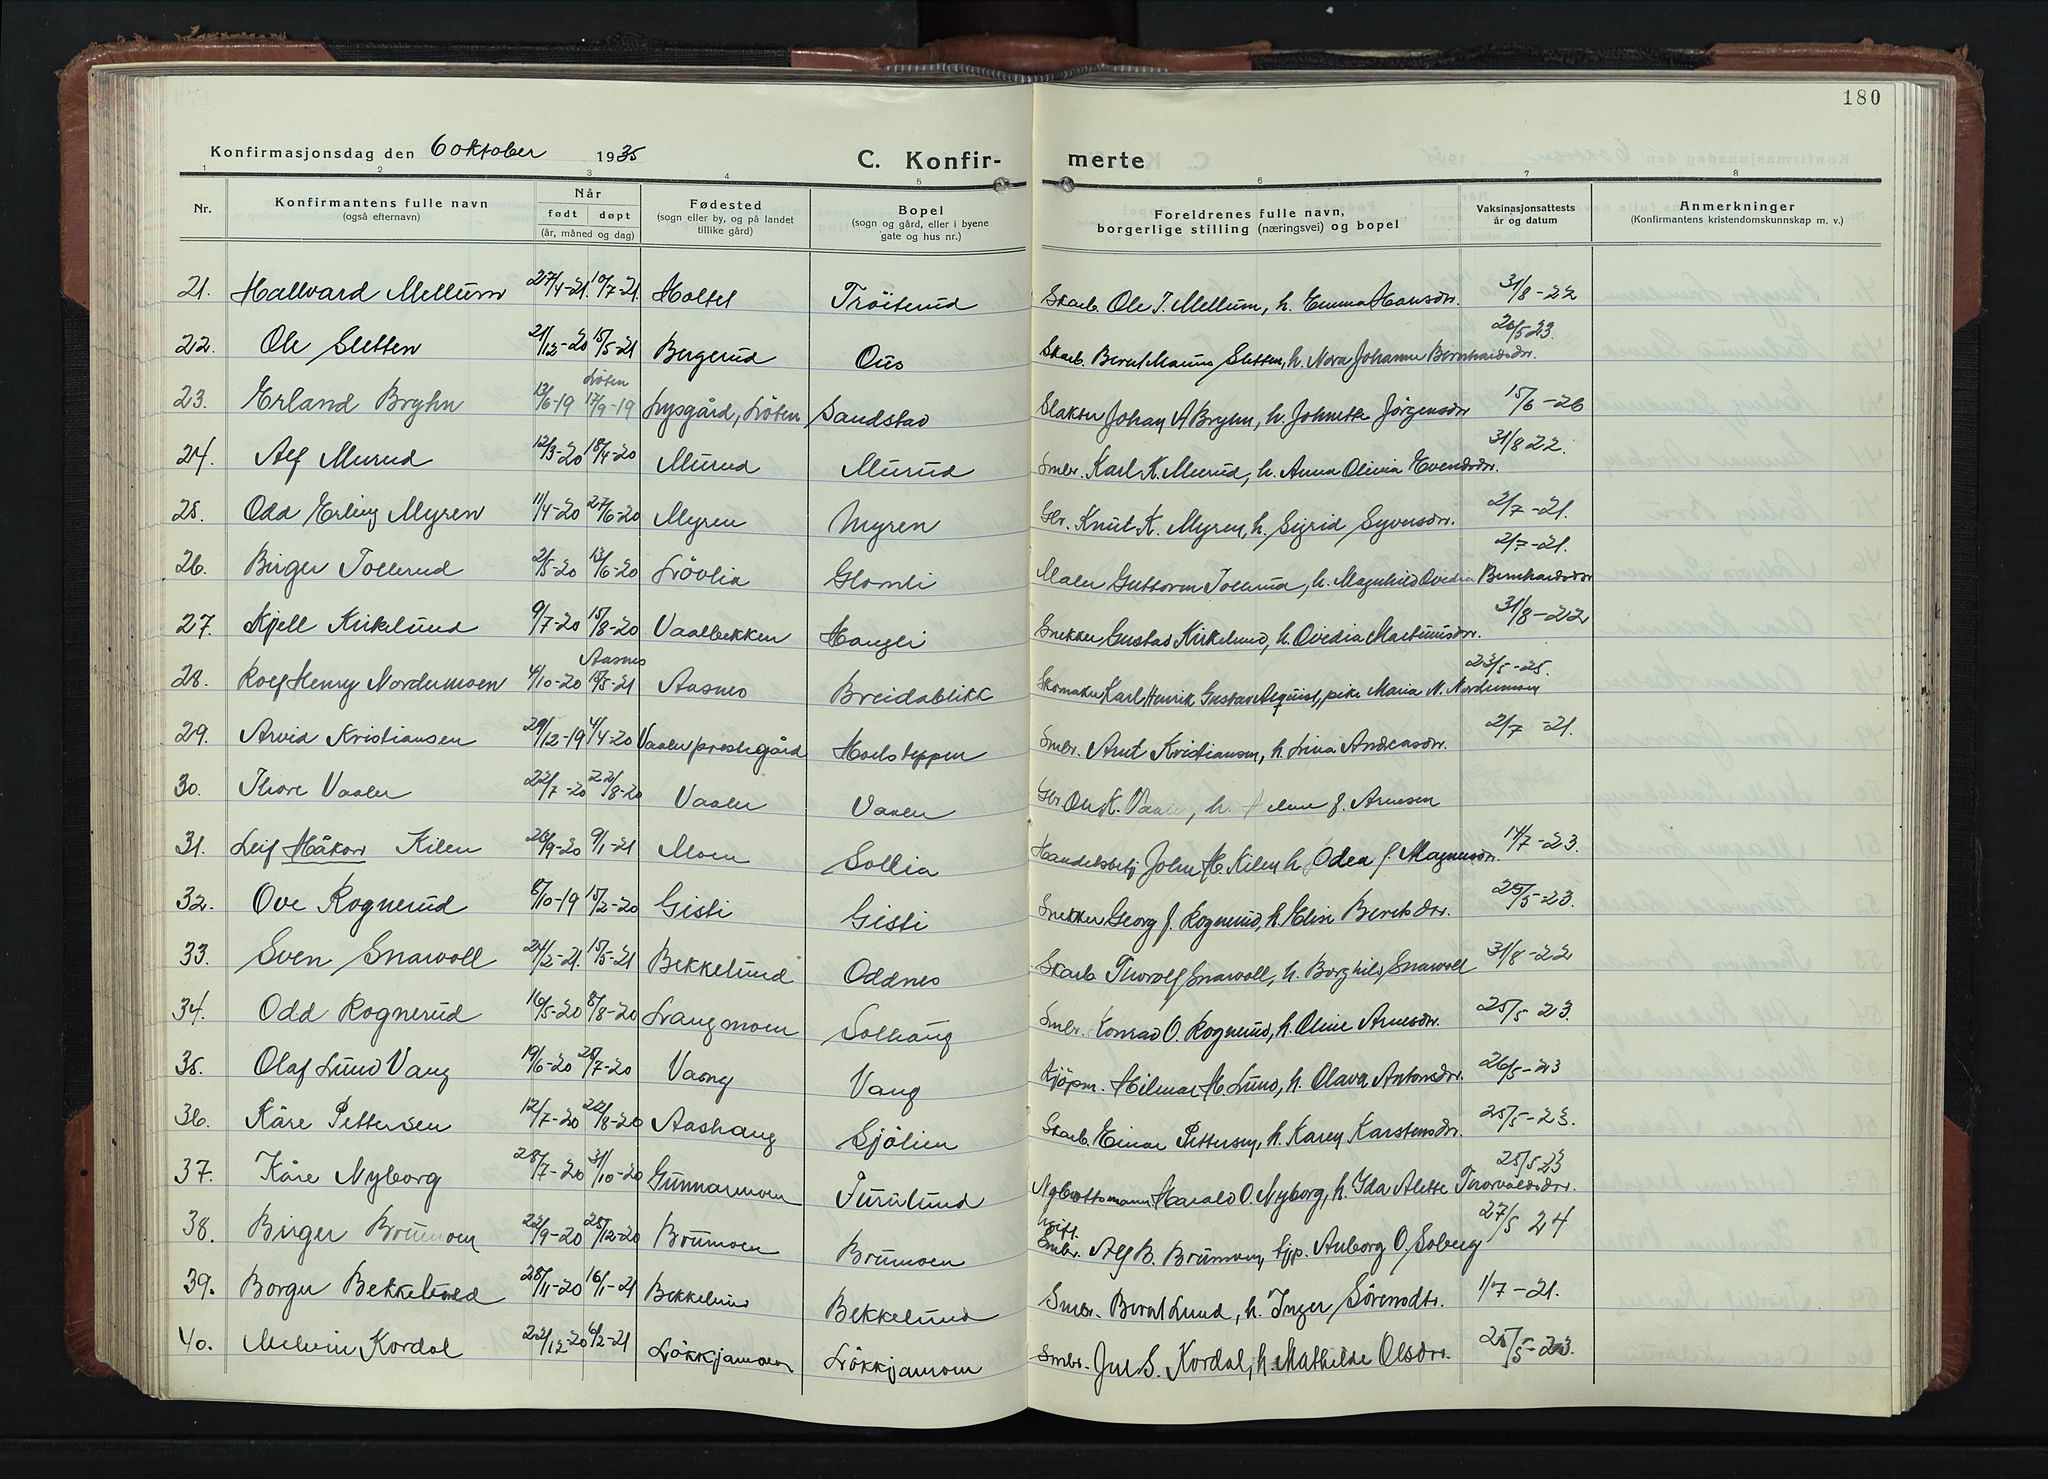 180
Konfirmasjonsdag den 6 oktober 1935 C. Konfir- merte
1 2 3 4 5 6 7 8
Nr. Konfirmantens fulle navn (også efternavn) Når født døpt (år, måned og dag) Fødested (sogn eller by, og på landet tillike gård) Bopel (sogn og gård, eller i byene gate og hus nr.) Foreldrenes fulle navn, borgerlige stilling (næringsvei) og bopel Vaksinasjonsattests år og datum Anmerkninger (Konfirmantens kristendomskunnskap m. v.)
21. Hallvard Mellum 27/4-21 10/7-21 Holtet Tröiterud Skarb. Ole J. Mellum, h. Emma Hansdr. 31/8-22
22. Ole Sletten 21/12-20 15/5-21 Bergerud Ous Skarb. Bernt Marius Sletten, h. Nora Johanne Bernhardsdr. 26/5 23.
23. Erland Bryhn 13/6-19 Löten 17/9-19 Lysgård, Löten Sandstad Slakter Johan A Bryhn, h. Johnette Jörgensdr 15/6-26
24. Alf Murud 12/3-20 18/4-20 Murud Murud Smbr. Karl K. Murud, h. Anna Olivia Evendsdr. 31/8 22.
25. Odd Erling Myren 11/4-20 27/6-20 Myren Myren Gbr. Knut K. Myren, h. Sigrid Syversdr. 2/7-21.
26. Birger Tollerud 2/5-20 13/6-20 Lövlia Glomli Maler Guttorm Tollerud, h. Magnhild Ovedia Bernhardsdr 2/7-21.
27. Kjell Kirkelund 9/7-20 15/8-20 Vaalbekken Haugli Snekker Gustav Kirkelund, h. Ovedia Martinusdr. 31/8-22
28. Rolf Henry Nordermoen 4/10-20 Aasnes 15/5-21 Aasnes Breidablikk Skomaker Karl Henrik Gustav Alquist, pike Maria N. Nordermoen 23/5-25.
29. Arvid Kristiansen 29/12-19 4/4-20 Vaaler prestegård Moelsteppen Smbr. Arnt Kristiansen, h. Lina Andreasdr. 2/7-21.
30. Thore Vaaler 22/7-20 22/8-20 Vaaler Vaaler Gbr Ole K. Vaaler, h. Helene J. Arnesen
31. Leif Håkon Kilen 26/9-20 9/1-21 Moen Sollia Handelsbetj John H. Kilen, h. Odea J. Magnusdr. 14/7-23.
32. Ove Rognerud 8/10-19 15/2-20 Gisti Gisti Snekker Georg J. Rognerud, h. Elise Berntsdr. 25/5-23.
33. Sven Snarvoll 24/2-21. 15/5-21 Bekkelund Oddnes Skarb. Thorolf Snarvoll, h. Borghild Snarvoll 31/8-22
34. Odd Rognerud 16/5-20 8/8-20 Langmoen Solhaug Smbr. Konrad O. Rognerud, h. Oline Arnesdr. 25/5 23.
35. Olaf Lund Vang 19/6-20 25/7-20 Vang Vang Kjöpm. Hilmar H. Lund, h. Olava Antonsdr. 26/5-23
36. Kåre Pettersen 12/7-20 22/8-20 Aashaug Sjölien Skarb. Einar Pettersen, h. Karen Karstensdr. 25/5-23.
37. Kåre Nyborg 28/7-20 31/10-20 Gunnarmoen Furulund Nybrottsmann Harald O. Nyborg, h. Ida Alette Thorvaldsdr. 25/5 23
38. Birger Brumoen 22/9-20 25/12-20 Brumoen Brumoen Smbr. Alf B. Brumoen, Anborg O. Soberg 27/5 24
39. Borger Bekkelund 28/11-20 16/1-21 Bekkelund Bekkelund Smbr. Bernt Lund, h. Inger Sörensdtr. 1/7-21.
40. Melvin Kordal 22/12-20 6/2-21 Lökkjamoen Lökkjamoen Smbr. Jul S. Kordal, h Mathilde Olsdr. 25/5-23.